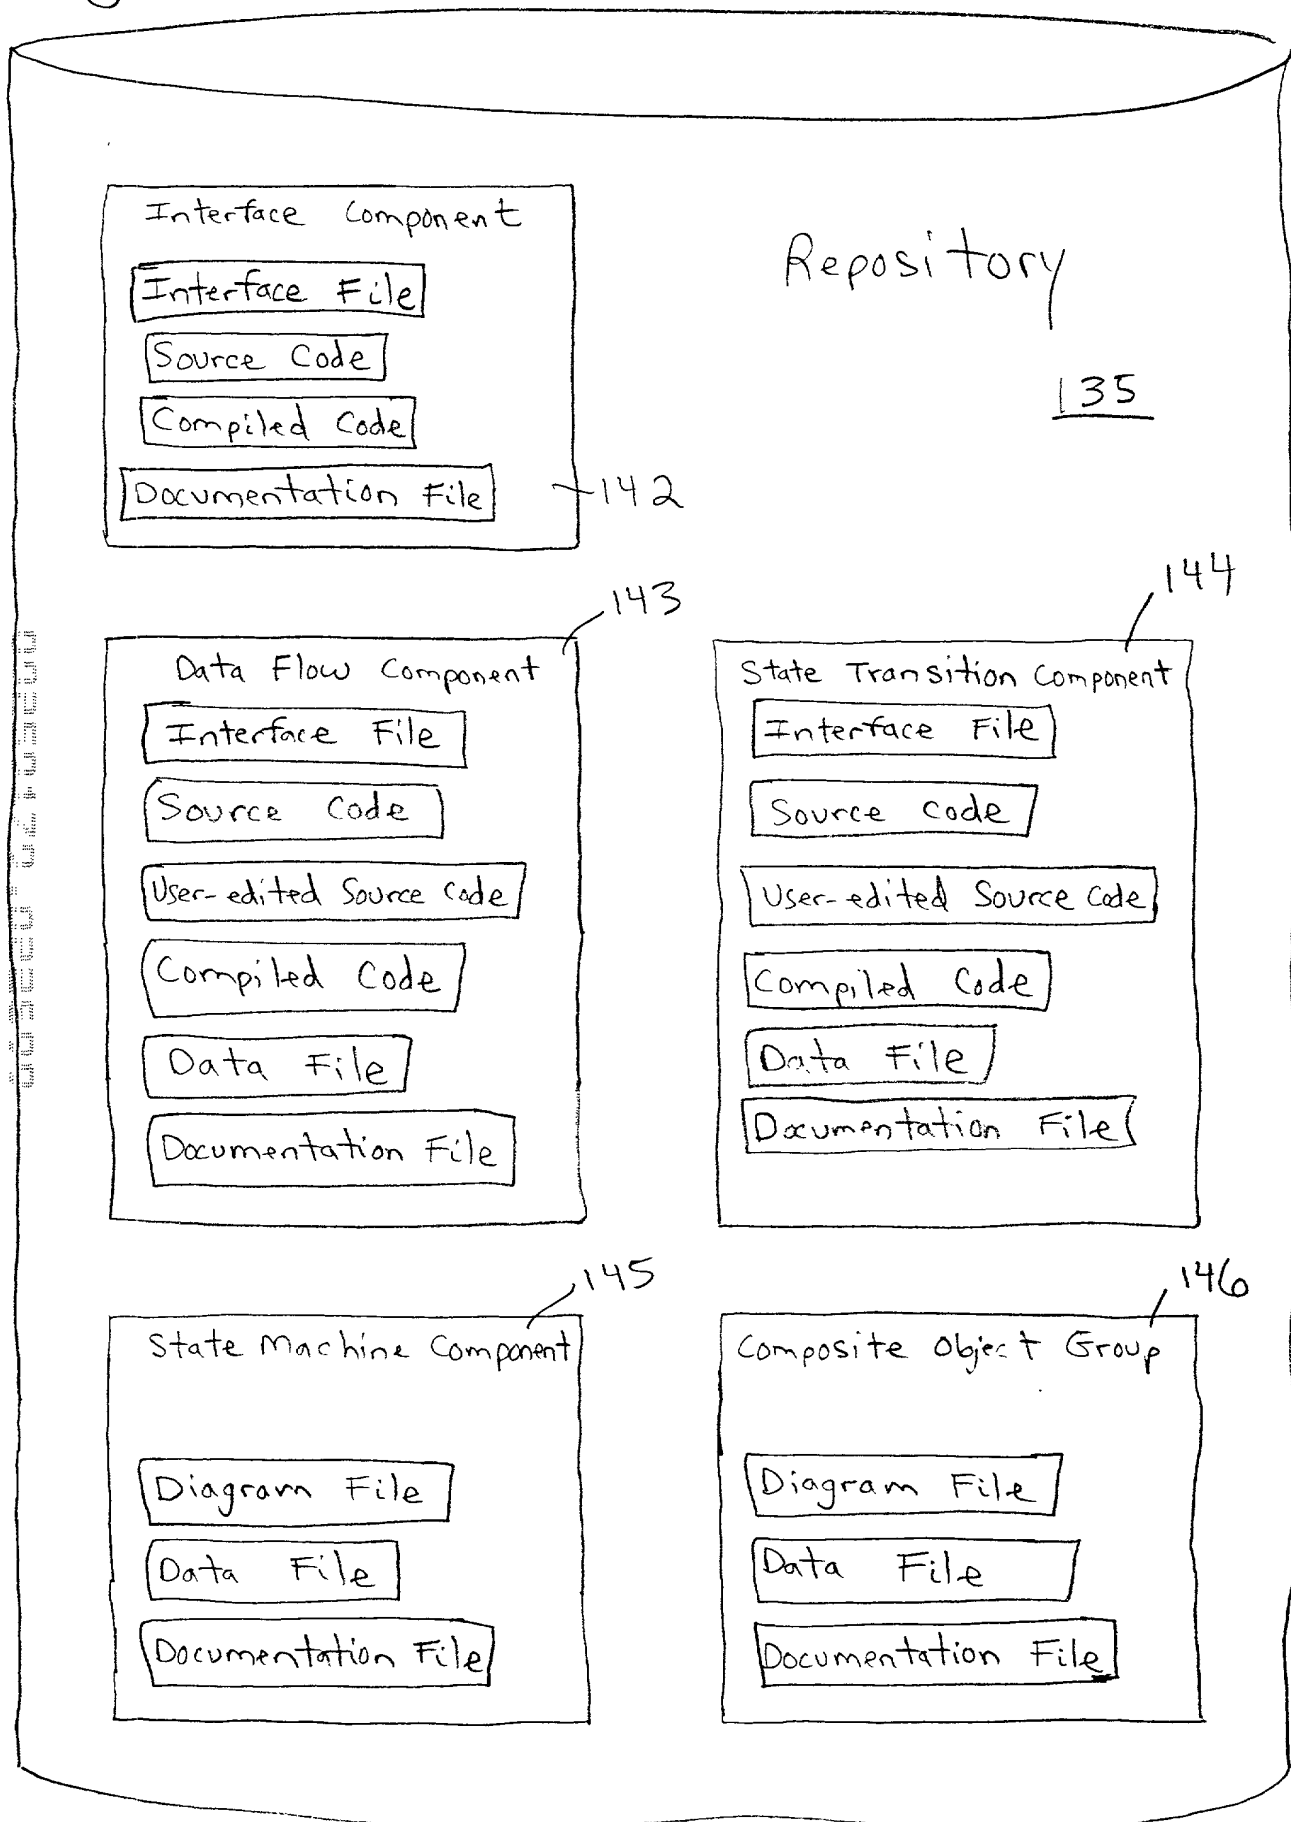 Interface Component
Interface File
Source Code
Compiled Code
Documentation File
142
Repository
135
143
Data Flow Component
Interface File
Source Code
User-edited Source Code
Compiled Code
Data File
Documentation File
144
State Transition Component
Interface File
Source Code
User-edited Source Code
Compiled Code
Data File
Documentation File
145
State Machine Component
Diagram File
Data File
Documentation File
146
Composite Object Group
Diagram File
Data File
Documentation File